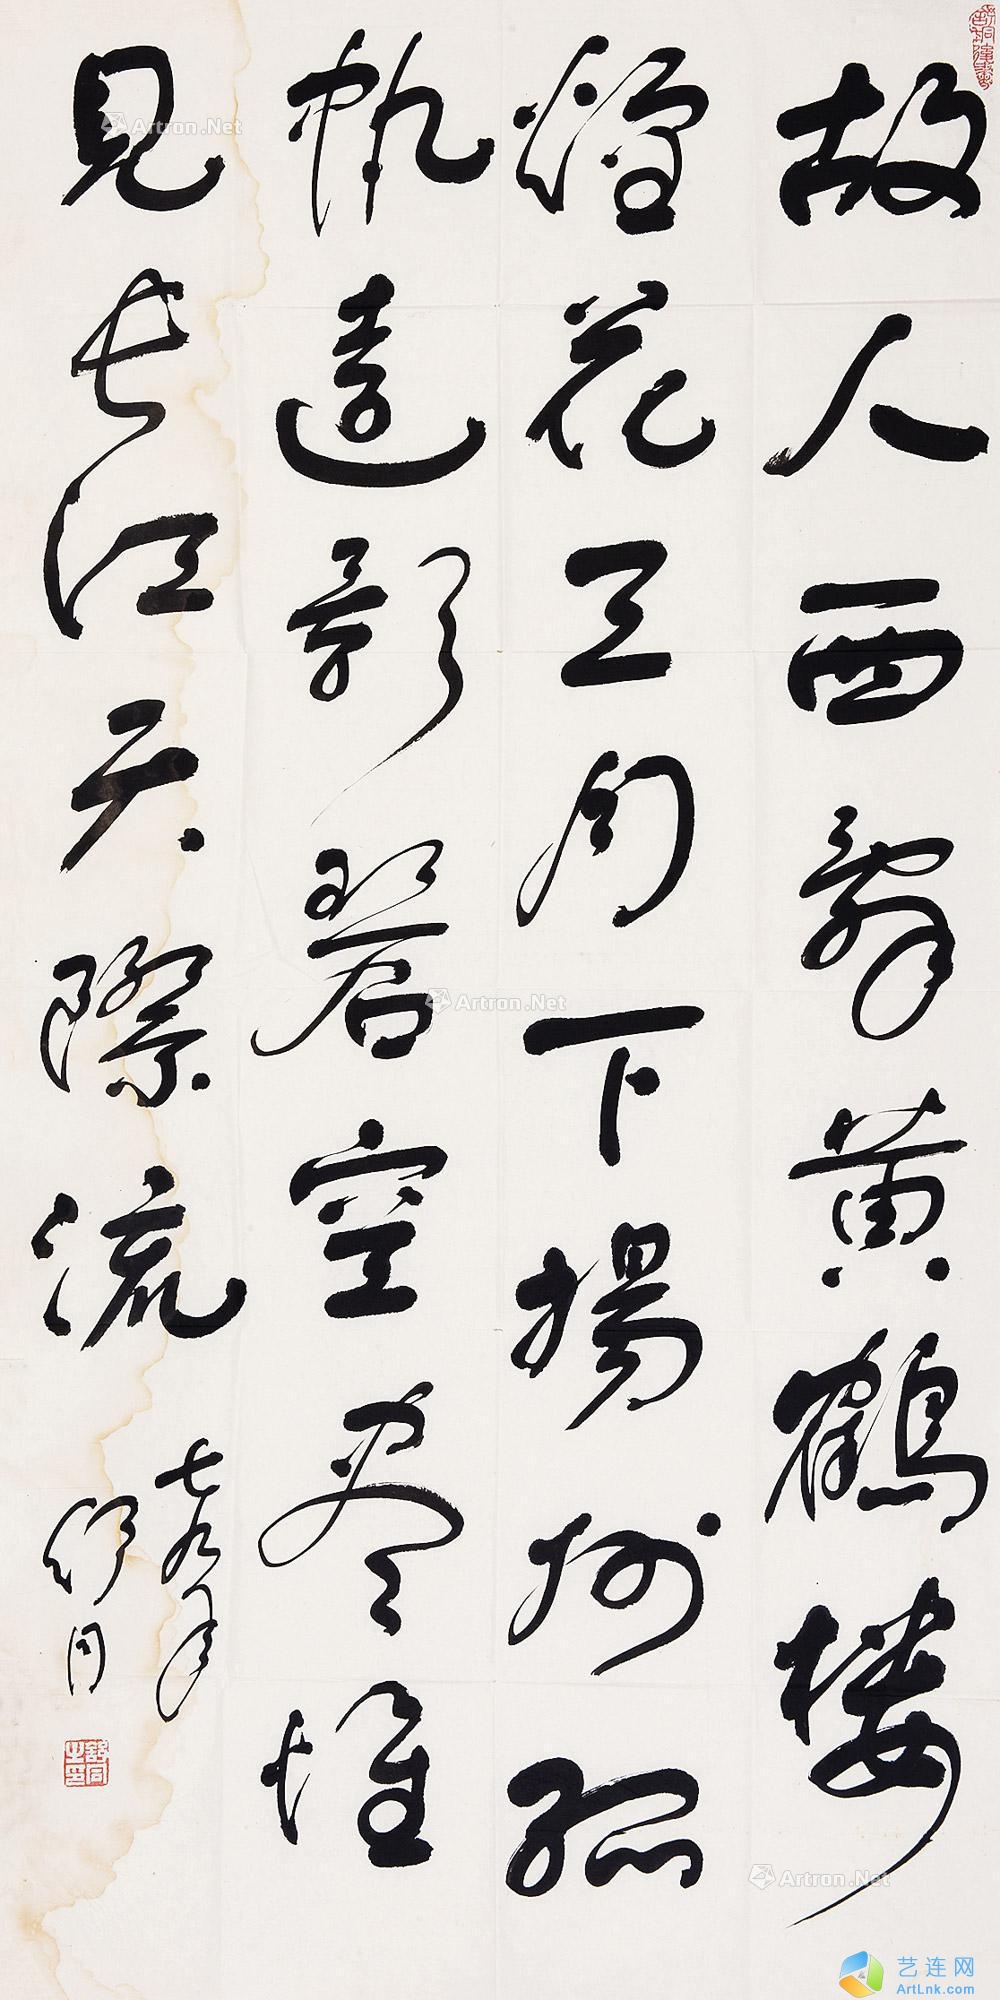 故人西辭黄鶴樓
煙花三月下揚州孤
帆遠影碧空尽惟
見長江天際流
七九年
舒同
舒同之印
Artron.Net
Artron.Net
Artron.Net
艺连网
ArtLnk.com